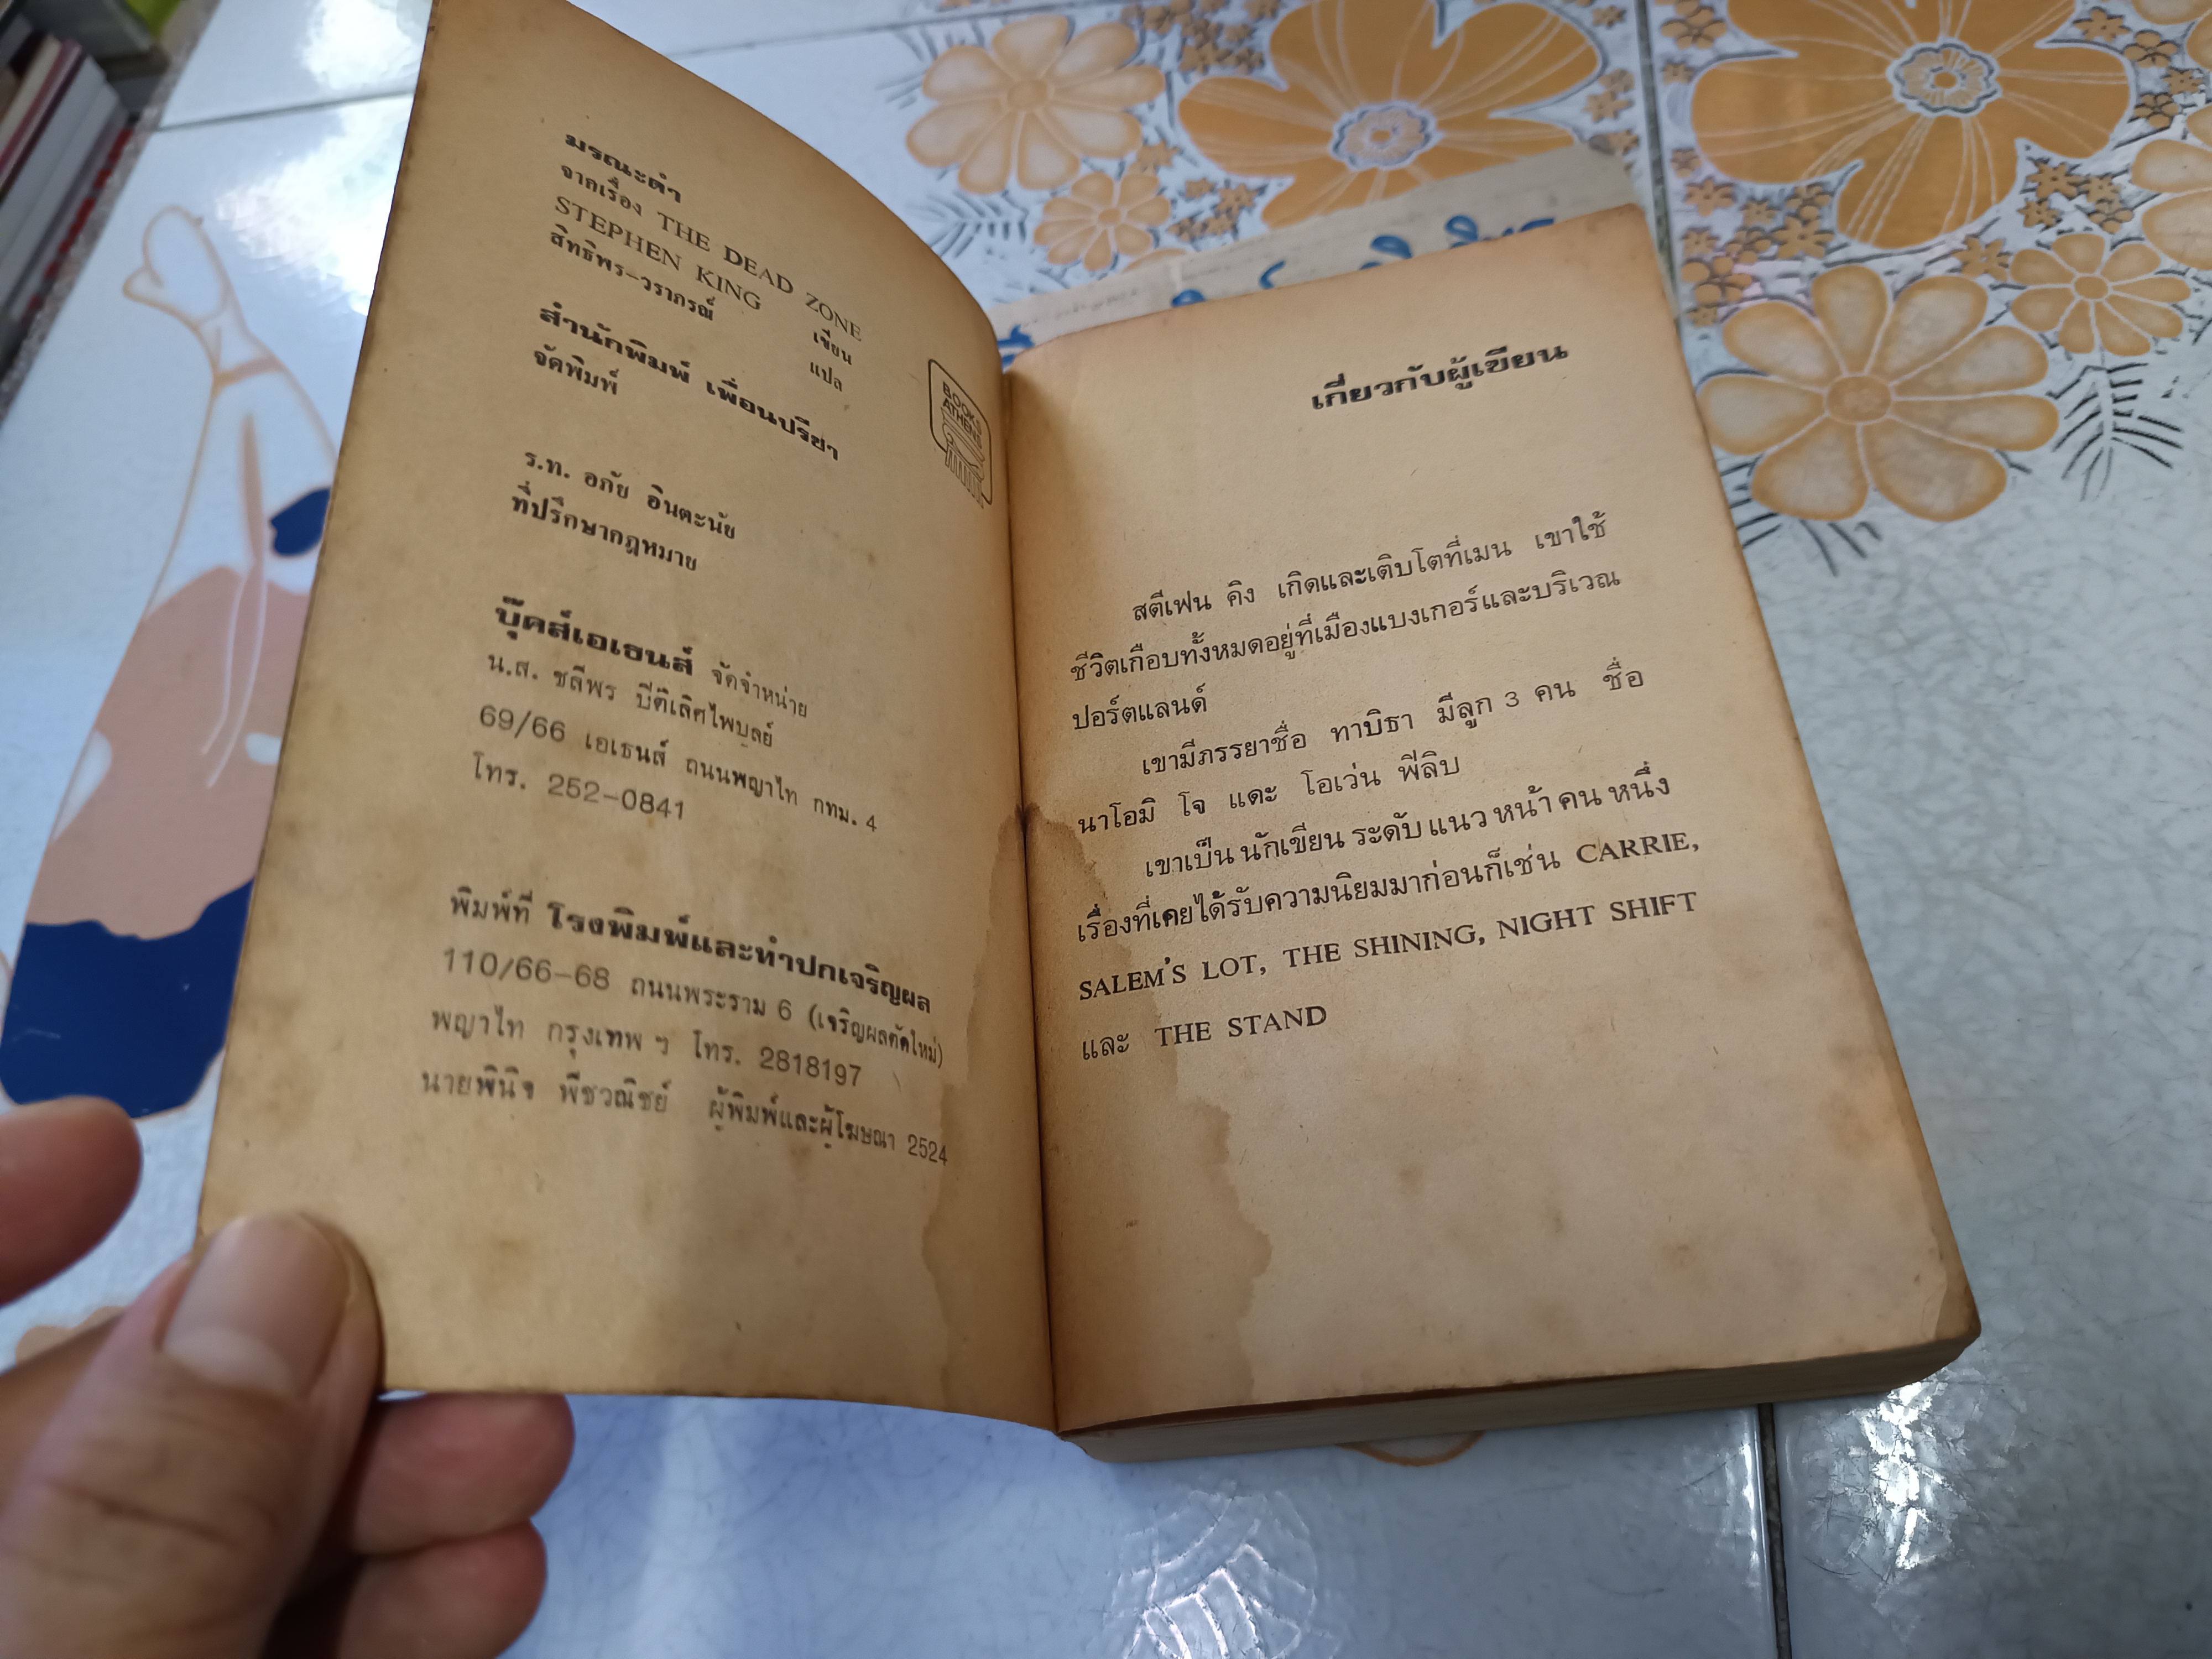 มรณะดำ
จากเรื่อง THE DEAD ZONE
STEPHEN KING เขียน
สิทธิพร-วราภรณ์ แปล
สำนักพิมพ์ เพื่อนปรียา
จัดพิมพ์
BOOKS
ATHENS
ร.ท. อภัย อินตะนัย
ที่ปรึกษากฎหมาย
บุ๊คส์เอเธนส์ จัดจำหน่าย
น.ส. ชลีพร ปีติเลิศไพบูลย์
69/66 เอเธนส์ ถนนพญาไท กทม. 4
โทร. 252-0841
พิมพ์ที่ โรงพิมพ์และทำปกเจริญผล
110/66-68 ถนนพระราม 6 (เจริญผลตัดใหม่)
พญาไท กรุงเทพ ฯ โทร. 2818197
นายพินิจ พืชวณิชย์ ผู้พิมพ์และผู้โฆษณา 2524
เกี่ยวกับผู้เขียน
สตีเฟน คิง เกิดและเติบโตที่เมน เขาใช้
ชีวิตเกือบทั้งหมดอยู่ที่เมืองแบงเกอร์และบริเวณ
ปอร์ตแลนด์
เขามีภรรยาชื่อ ทาบิธา มีลูก 3 คน ชื่อ
นาโอมิ โจ แดะ โอเว่น พีลิบ
เขาเป็น นักเขียน ระดับ แนว หน้า คน หนึ่ง
เรื่องที่เคยได้รับความนิยมมาก่อนก็เช่น CARRIE,
SALEM'S LOT, THE SHINING, NIGHT SHIFT
และ THE STAND